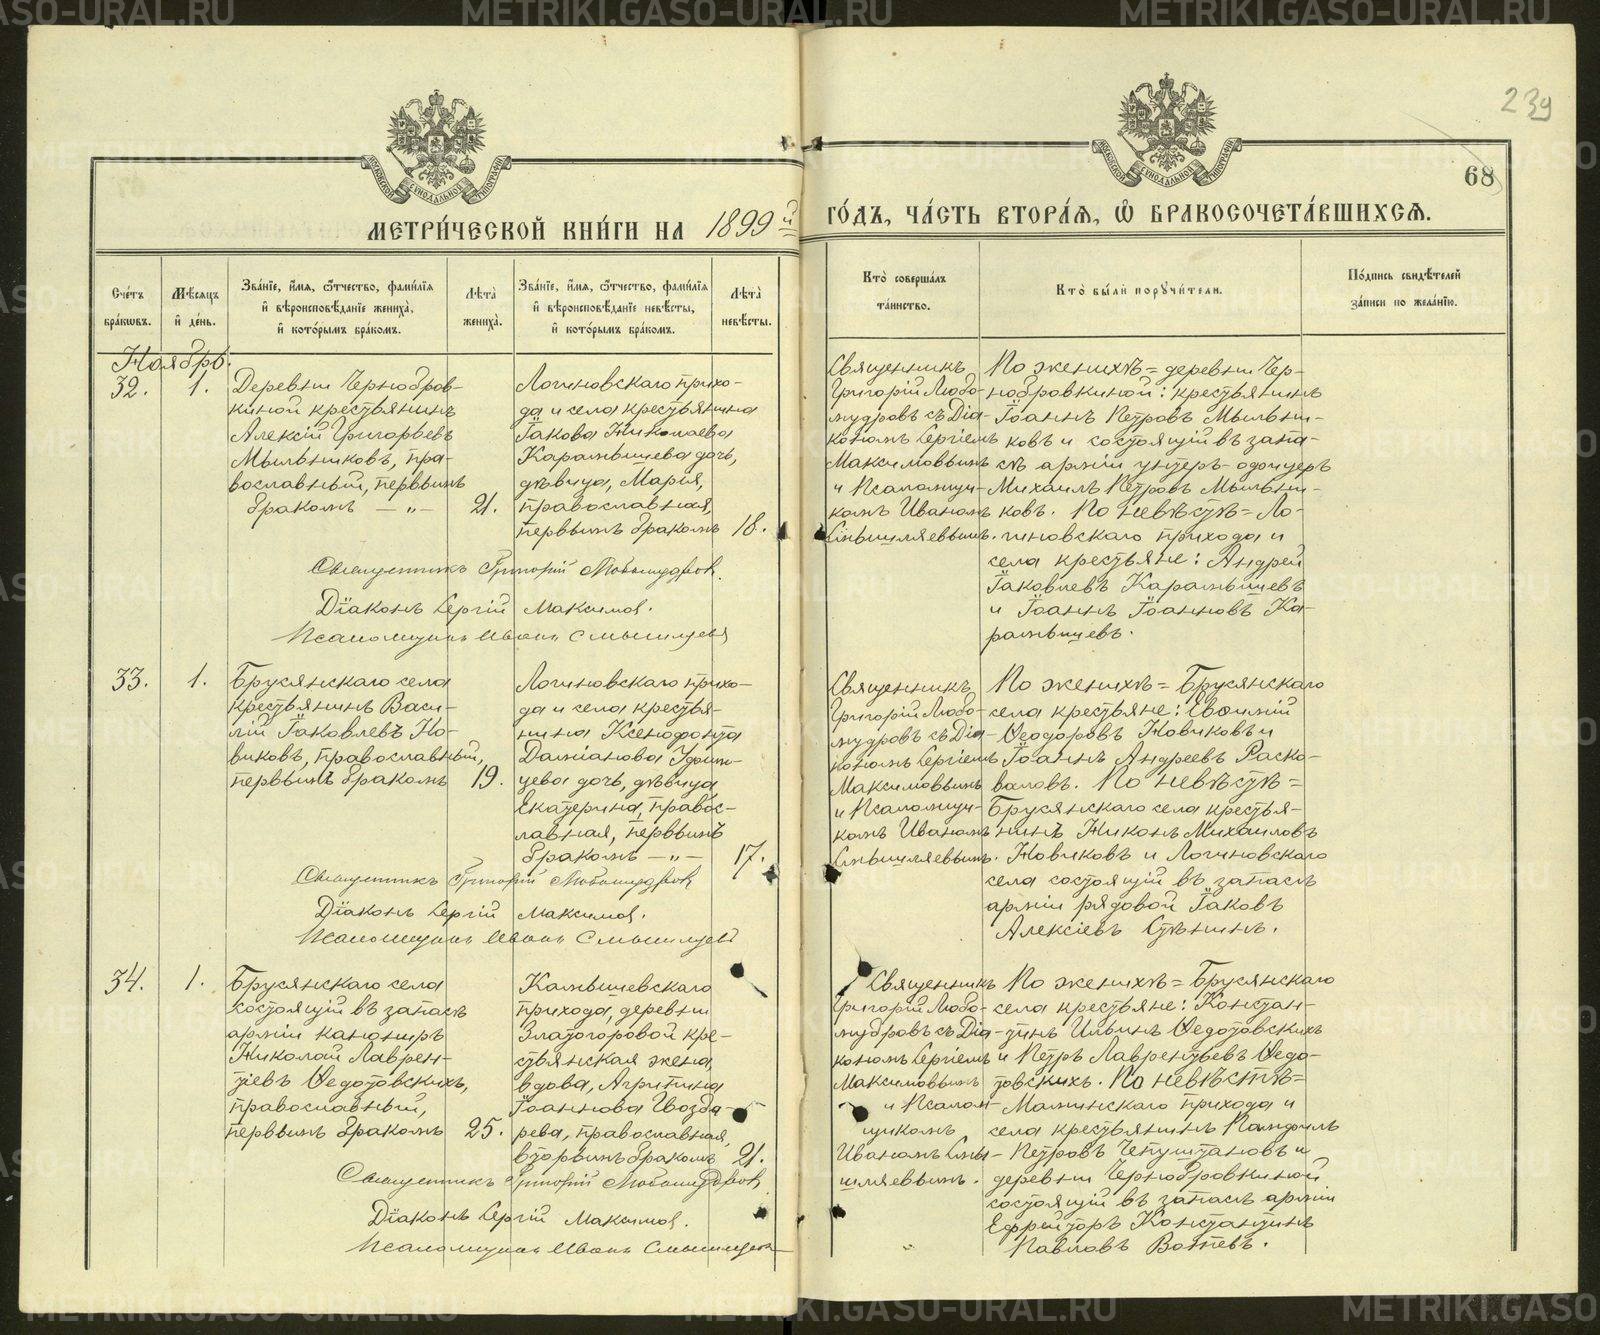 METRIKI.GASO-URAL.RU
239
68
МОСКОВСКОЙ СѴНОДАЛЬНОЙ ТИПОГРАФІИ
МЕТРИ́ЧЕСКОЙ КНИ́ГИ НА 1899й ГО́ДЪ, ЧА́СТЬ ВТОРА́Я, Ѽ БРАКОСОЧЕТА́ВШИХСЯ.
Сче́тъ бра́кωвъ.
Мѣ́сяцъ и҆ де́нь.
Зва́нїе, и҆́мя, ѻ҆́тчество, фами́лїя
и҆ вѣроисповѣ́данїе жениха̀,
и҆ кото́рымъ бра́комъ.
Лѣ́та жениха̀.
Зва́нїе, и҆́мя, ѻ҆́тчество, фами́лїя
и҆ вѣроисповѣ́данїе невѣ́сты,
и҆ кото́рымъ бра́комъ.
Лѣ́та невѣ́сты.
Кто̀ соверша́лъ
та́инство.
Кто̀ бы́ли поручи́тели.
По́дпись свидѣ́телей
за́писи по жела́нїю.
Ноябрь.
32.
1.
Деревни Чернобров-
киной крестьянинъ
Алексій Григорьевъ
Мыльниковъ, пра-
вославный, первымъ
бракомъ — „ —
21.
Логиновскаго прихо-
да и села крестьянина
Іакова Николаева
Карамышева дочь,
дѣвица, Марія,
православная,
первымъ бракомъ
18.
Священникъ
Григорій Любо-
мудровъ съ Діа-
кономъ Сергіемъ
Максимовымъ
и Псаломщи-
комъ Иваномъ
Смышляевымъ.
По женихѣ = деревни Чер-
нобровкиной: крестьянинъ
Іоаннъ Петровъ Мыльни-
ковъ и состоящій въ запа-
сѣ арміи унтеръ-офицеръ
Михаилъ Петровъ Мыльни-
ковъ. По невѣстѣ = Ло-
гиновскаго прихода и
села крестьяне: Андрей
Іаковлевъ Карамышевъ
и Іоаннъ Іоанновъ Ка-
рамышевъ.
Священникъ Григорій Любомудровъ.
Діаконъ Сергій Максимов.
Псаломщикъ Иванъ Смышляевъ
33.
1.
Брусянскаго села
крестьянинъ Васи-
лій Іаковлевъ Но-
виковъ, православный,
первымъ бракомъ
19.
Логиновскаго прихо-
да и села крестья-
нина Ксенофонта
Даміанова
дочь, дѣвица
Екатерина, правос-
лавная, первымъ
бракомъ — „ —
17.
Священникъ
Григорій Любо-
мудровъ съ Діа-
кономъ Сергіемъ
Максимовымъ
и Псаломщи-
комъ Иваномъ
Смышляевымъ.
По женихѣ = Брусянскаго
села крестьяне: Евфимій
Ѳеодоровъ Новиковъ и
Іоаннъ Андреевъ Раско-
валовъ. По невѣстѣ =
Брусянскаго села крестья-
нинъ Никонъ Михаиловъ
Новиковъ и Логиновскаго
села состоящій въ запасѣ
арміи рядовой Іаковъ
Алексіевъ Стѣнинъ.
Священникъ Григорій Любомудровъ
Діаконъ Сергій Максимов.
Псаломщикъ Иванъ Смышляевъ
34.
1.
Брусянскаго села
состоящій въ запасѣ
арміи канониръ
Николай Лаврен-
тіевъ Ѳедотовскихъ,
православный,
первымъ бракомъ
25.
Камышевскаго
прихода, деревни
Златогоровой кре-
стьянская жена
вдова, Агрипина
Іоаннова Гвозда-
рева, православная,
вторымъ бракомъ
21.
Священникъ
Григорій Любо-
мудровъ съ Діа-
кономъ Сергіемъ
Максимовымъ
и Псалом-
щикомъ
Иваномъ Смы-
шляевымъ.
По женихѣ = Брусянскаго
села крестьяне: Констан-
тинъ Ильинъ Ѳедотовскихъ
и Петръ Лаврентьевъ Ѳедо-
товскихъ. По невѣстѣ =
Маминскаго прихода и
села крестьянинъ Памфилъ
Петровъ Чепуштановъ и
деревни Чернобровкиной
состоящій въ запасѣ арміи
Ефрейторъ Константинъ
Павловъ
Священникъ Григорій Любомудровъ
Діаконъ Сергій Максимов.
Псаломщикъ Иванъ Смышляевъ